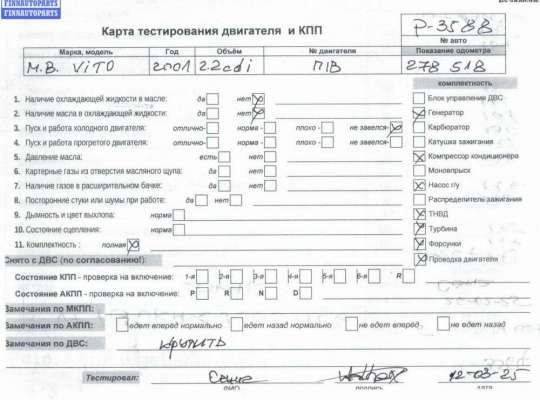 FINNAUTOPARTS
FINNAUTOPARTS
Карта тестирования двигателя и КПП
P-3588
№ авто
Марка, модель Год Объём № двигателя Показание одометра
M.B. ViTO 2001 2.2cdi П1В 278 518
комплектность
1. Наличие охлаждающей жидкости в масле: да нет
Блок управления ДВС
2. Наличие масла в охлаждающей жидкости: да нет
Генератор
3. Пуск и работа холодного двигателя: отлично- норма - плохо - не завелся-
Карбюратор
4. Пуск и работа прогретого двигателя: отлично- норма - плохо - не завелся-
Катушка зажигания
5. Давление масла: есть нет
Компрессор кондиционера
6. Картерные газы из отверстия масляного щупа: да нет
Моновпрыск
7. Наличие газов в расширительном бачке: да нет
Насос гу
8. Посторонние стуки или шумы при работе: да нет
Распределитель зажигания
9. Дымность и цвет выхлопа: норма
ТНВД
10. Состояние сцепления: норма
Турбина
11. Комплектность : полная
Форсунки
Снято с ДВС (по согласованию!):
Проводка двигателя
Состояние КПП - проверка на включение: 1-я 2-я 3-я 4-я 5-я 6-я R
Состояние АКПП - проверка на включение: P R N D
Замечания по МКПП:
Замечания по АКПП: едет вперёд нормально едет назад нормально не едет вперёд не едет назад
Замечания по ДВС: крутить
Тестировал: Саша 12-03-25
подпись дата